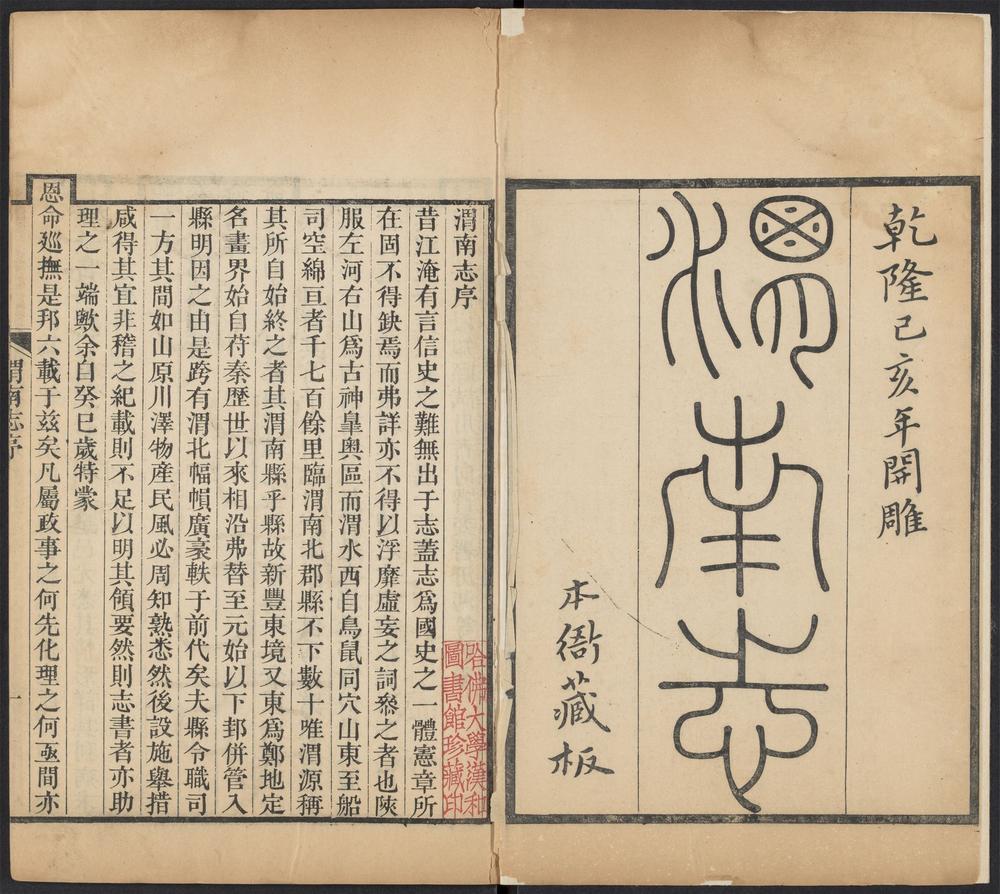 乾隆己亥年開雕
渭南志
本衙藏板
渭南志序
昔江淹有言信史之難無出于志蓋志爲國史之一體憲章所
在固不得缺焉而弗詳亦不得以浮靡虛妄之詞叅之者也陝
服左河右山爲古神臯奧區而渭水西自鳥鼠同穴山東至船
司空綿亘者千七百餘里臨渭南北郡縣不下數十唯渭源稱
其所自始終之者其渭南縣乎縣故新豐東境又東爲鄭地定
名畫界始自苻秦歷世以來相沿弗替至元始以下邽併管入
縣明因之由是跨有渭北幅幀廣袤軼于前代矣夫縣令職司
一方其間如山原川澤物産民風必周知熟悉然後設施舉措
咸得其宜非稽之紀載則不足以明其領要然則志書者亦助
理之一端歟余自癸巳歲特蒙
恩命廵撫是邦六載于兹矣凡屬政事之何先化理之何亟間亦
渭南志序
一
哈佛大學漢和
圖書館珍藏印